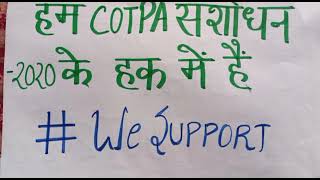 हम COTPA संशोधन
-2020 के हक में हैं
# We SUPPORT